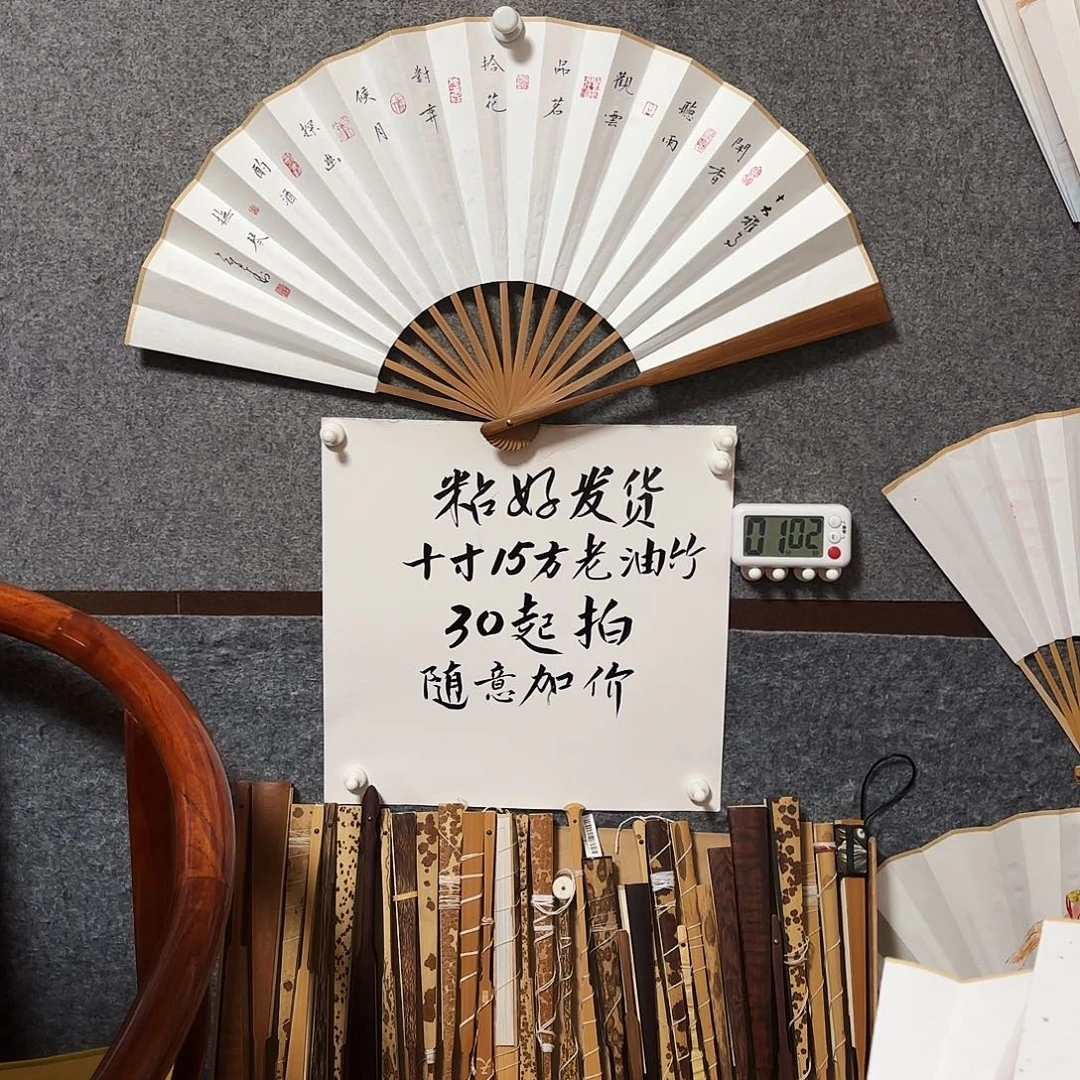 十大雅事
聞香
聽雨
觀雲
品茗
拾花
對弈
候月
探幽
酌酒
撫琴
粘好发货
十寸15方老油竹
30起拍
随意加价
01 02